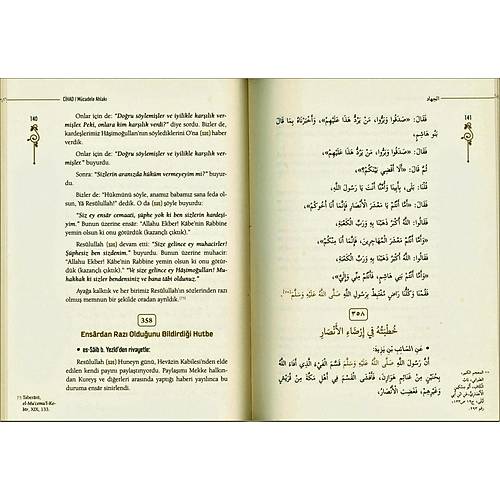 CİHAD / Mücadele Ahlakı
140
Onlar için de: "Doğru söylemişler ve iyilikle karşılık vermişler. Peki, onlara kim karşılık verdi?" diye sordu. Bizler de,
kardeşlerimiz Hâşimoğulları'nın söylediklerini O'na (sas) haber
verdik.
Onlar için de: "Doğru söylemişler ve iyilikle karşılık vermişler" buyurdu.
Sonra: "Sizlerin aranızda hüküm vermeyeyim mi?" buyurdu.
Bizler de: "Hükmünü söyle, anamız babamız sana feda olsun, Yâ Resûlallah!" dedik. O da (sas) şöyle buyurdu:
"Siz ey ensâr cemaati, şüphe yok ki ben sizlerin kardeşiyim." Bunun üzerine ensâr: "Allahu Ekber! Kâbe'nin Rabbine
yemin olsun ki onu gördüdük (kazançlı çıktık)."
Resûlullah (sas) devam etti: "Size gelince ey muhacirler!
Şüphesiz ben sizdenim." buyurdu. Bunun üzerine muhacir:
"Allahu Ekber! Kâbe'nin Rabbine yemin olsun ki onu gördüdük (kazançlı çıktık)." "Ve size gelince ey Hâşimoğulları! Muhakkak ki sizler bendensiniz ve bana tâbi oldunuz."
Ayağa kalktık ve her birimiz Resûlullah'ın sözlerinden razı
olmuş memnun bir şekilde oradan ayrıldık.
358
Ensârdan Razı Olduğunu Bildirdiği Hutbe
• es-Sâib b. Yezîd'den rivayetle:
Resûlullah (sas) Huneyn günü, Hevâzin Kabilesi'nden elde
edilen kendi payını paylaştırıyordu. Paylaşımı Mekke halkından Kureyş ve diğerleri arasında yaptığı haberi yayılınca bu
duruma ensâr sinirlendi.
Taberânî,
el-Mu'cemu'l-Kebîr, XIX, 133.
الجهاد
١٤١
فَقَالَ: «صَدَقُوا وَبَرُّوا، مَنْ يَرُدُّ هَذَا عَلَيْهِمْ»، وَأَخْبَرْنَاهُ بِمَا قَالَ
بَنُو هَاشِمٍ،
فَقَالَ: «صَدَقُوا وَبَرُّوا، مَنْ يَرُدُّ هَذَا عَلَيْهِمْ»،
ثُمَّ قَالَ: «أَلَا أَقْضِي بَيْنَكُمْ؟»،
قُلْنَا: بَلَى، بِأَبِينَا وَأُمِّنَا أَنْتَ يَا رَسُولَ اللَّهِ،
قَالَ: «أَمَّا أَنْتُمْ يَا مَعْشَرَ الْأَنْصَارِ فَإِنَّمَا أَنَا أَخُوكُمْ»،
فَقَالُوا: اللَّهُ أَكْبَرُ ذَهَبْنَا بِهِ وَرَبِّ الْكَعْبَةِ،
«وَأَمَّا أَنْتُمْ مَعْشَرَ الْمُهَاجِرِينَ، فَإِنَّمَا أَنَا مِنْكُمْ»،
فَقَالُوا: اللَّهُ أَكْبَرُ ذَهَبْنَا بِهِ وَرَبِّ الْكَعْبَةِ،
«وَأَمَّا أَنْتُمْ بَنِي هَاشِمٍ، فَأَنْتُمْ مِنِّي وَإِلَيَّ»،
فَقُمْنَا وَكُلُّنَا رَاضٍ مُغْتَبِطٌ بِرَسُولِ اللَّهِ صَلَّى اللَّهُ عَلَيْهِ وَسَلَّمَ
٣٥٨
خُطْبَتُهُ فِي إِرْضَاءِ الْأَنْصَارِ
- عَنِ السَّائِبِ بْنِ يَزِيدَ:
أَنَّ رَسُولَ اللَّهِ صَلَّى اللَّهُ عَلَيْهِ وَسَلَّمَ قَسَمَ الْفَيْءَ الَّذِي أَفَاءَ اللَّهُ
بِحُنَيْنٍ مِنْ غَنَائِمِ هَوَازِنَ، فَأَفْشَى الْقَسْمَ فِي أَهْلِ مَكَّةَ مِنْ قُرَيْشٍ
وَغَيْرِهِمْ، فَغَضِبَتِ الْأَنْصَارُ،